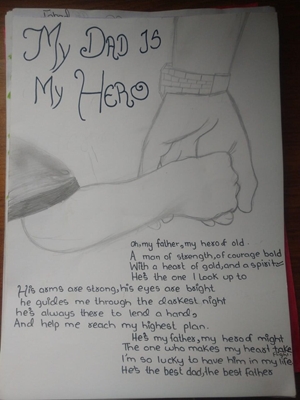 My Dad Is
My Hero
Oh, my father, my hero of old.
A man of strength, of courage bold
With a heart of gold, and a spirit
He's the one I look up to
His arms are strong, his eyes are bright
he guides me through the darkest night
he's always there to lend a hand,
And help me reach my highest plan.
He's my father, my hero of might
The one who makes my heart take
I'm so lucky to have him in my life
He's the best dad, the best father